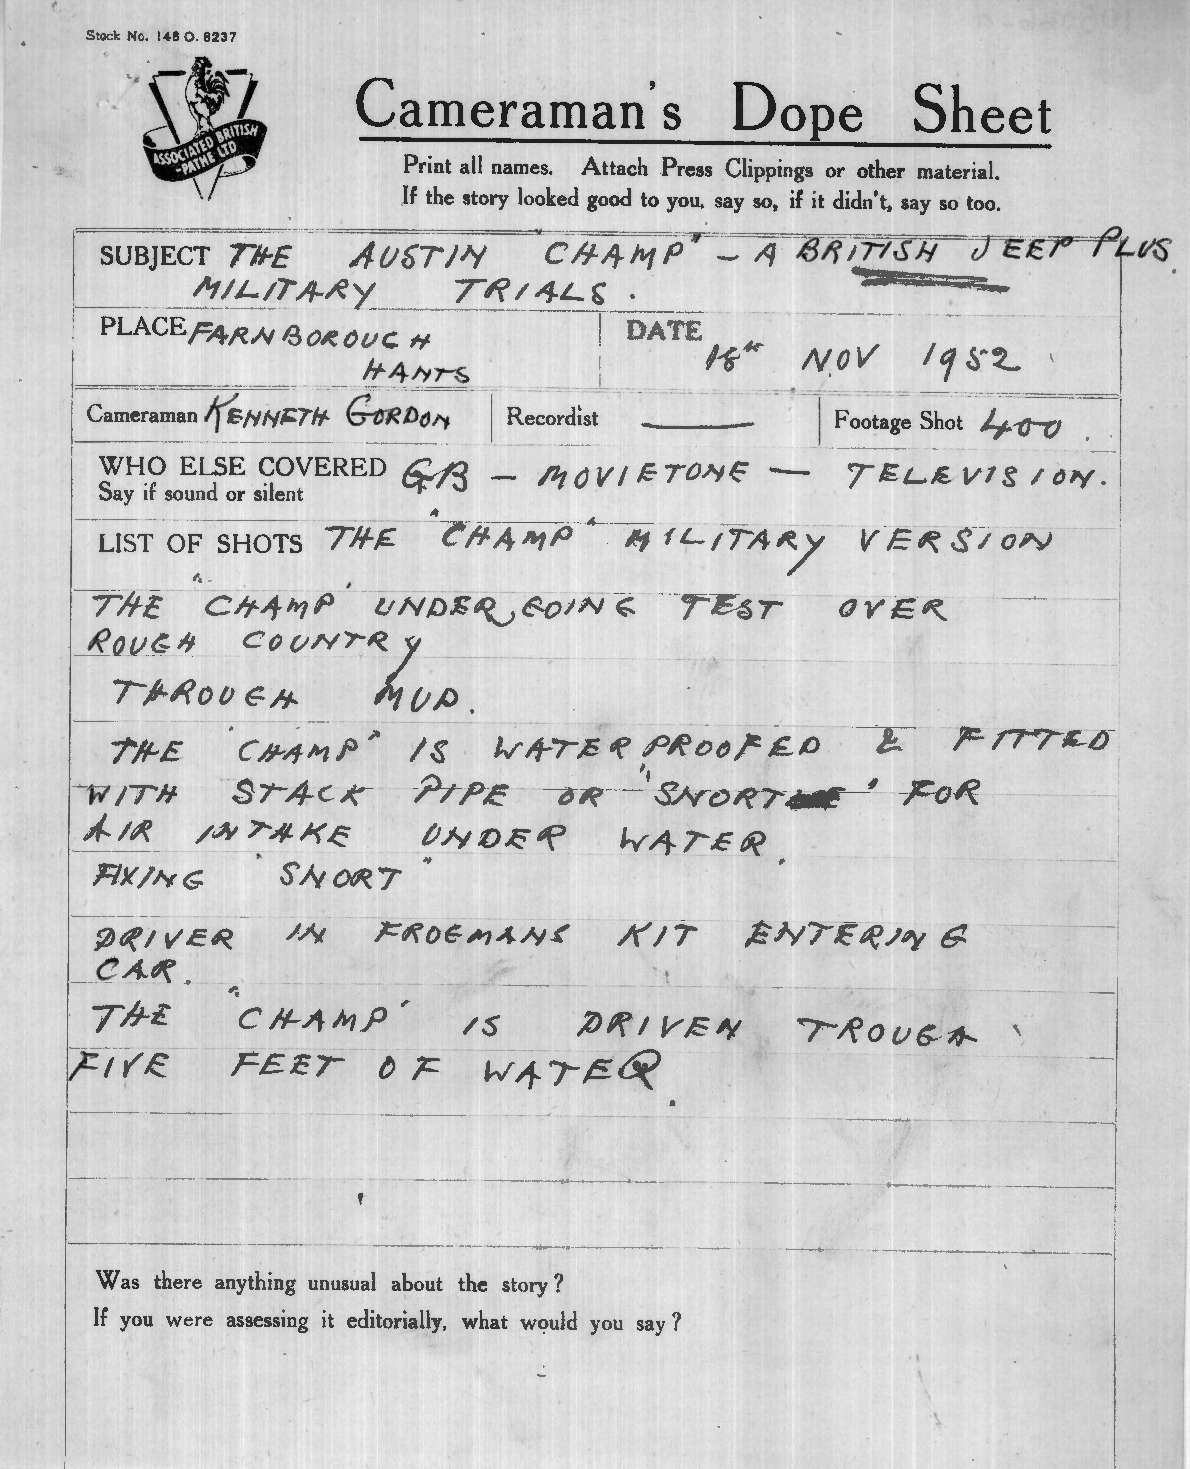 Stock No. 148 O. 8237
ASSOCIATED BRITISH
-PATHE LTD
Cameraman's Dope Sheet
Print all names. Attach Press Clippings or other material.
If the story looked good to you, say so, if it didn't, say so too.
SUBJECT THE AUSTIN CHAMP" - A BRITISH JEEP PLUS.
MILITARY TRIALS.
PLACE FARNBOROUGH
HANTS
DATE
18th NOV 1952
Cameraman KENNETH GORDON Recordist — Footage Shot 400.
WHO ELSE COVERED GB - MOVIETONE - TELEVISION.
Say if sound or silent
LIST OF SHOTS THE "CHAMP" MILITARY VERSION
THE "CHAMP' UNDERGOING TEST OVER
ROUGH COUNTRY
THROUGH MUD.
THE 'CHAMP" IS WATERPROOFED & FITTED
WITH STACK PIPE OR "SNORT' FOR
AIR INTAKE UNDER WATER.
FIXING 'SNORT"
DRIVER IN FROGMANS KIT ENTERING
CAR.
THE "CHAMP' IS DRIVEN TROUGH
FIVE FEET OF WATER.
Was there anything unusual about the story?
If you were assessing it editorially, what would you say?